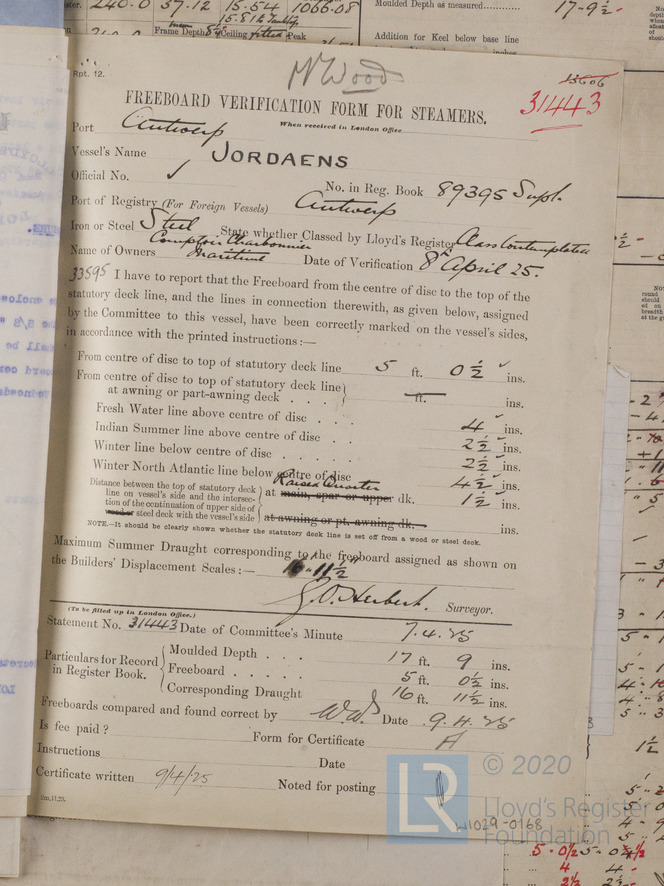 ster. 240.0 37.12 15.54 1066.08
15.81
Frame Depth Ceiling fitted Peak
Moulded Depth as measured 17-9½
Addition for Keel below base line
inches
Rpt. 12.
W Wood
13606
31443
FREEBOARD VERIFICATION FORM FOR STEAMERS.
When received in London Office
Port Antwerp
Vessel's Name JORDAENS
Official No. ✓
No. in Reg. Book 89395 Supl.
Port of Registry (For Foreign Vessels) Antwerp
Iron or Steel Steel State whether Classed by Lloyd's Register Class Contemplated
Name of Owners Comptoir Charbonnier Maritime Date of Verification 8th April 25.
33595 I have to report that the Freeboard from the centre of disc to the top of the
statutory deck line, and the lines in connection therewith, as given below, assigned
by the Committee to this vessel, have been correctly marked on the vessel's sides,
in accordance with the printed instructions:—
From centre of disc to top of statutory deck line 5 ft. 0½ ins.
From centre of disc to top of statutory deck line
at awning or part-awning deck . . . — ft. ins.
Fresh Water line above centre of disc . . . 4 ins.
Indian Summer line above centre of disc . . 2½ ins.
Winter line below centre of disc . . . . 2½ ins.
Winter North Atlantic line below centre of disc 4½ ins.
Distance between the top of statutory deck
line on vessel's side and the intersec-
tion of the continuation of upper side of
wood or steel deck with the vessel's side
at Raised Quarter main, spar or upper dk. 1½ ins.
at awning or pt. awning dk. ins.
NOTE.—It should be clearly shown whether the statutory deck line is set off from a wood or steel deck.
Maximum Summer Draught corresponding to the freeboard assigned as shown on
the Builders' Displacement Scales:— 16'-11½"
G.O. Herbert. Surveyor.
(To be filled up in London Office.)
Statement No. 31443 Date of Committee's Minute 7.4.25
Particulars for Record
in Register Book.
Moulded Depth . . . 17 ft. 9 ins.
Freeboard . . . . . 5 ft. 0½ ins.
Corresponding Draught 16 ft. 11½ ins.
Freeboards compared and found correct by WW Date 9.4.25
Is fee paid? Form for Certificate A
Instructions Date
Certificate written 9/4/25 Noted for posting
2m,11,23.
W1029-0168
LR © 2020
Lloyd's Register
Foundation
5-0½ 5-0½
4 4
2½ 2½